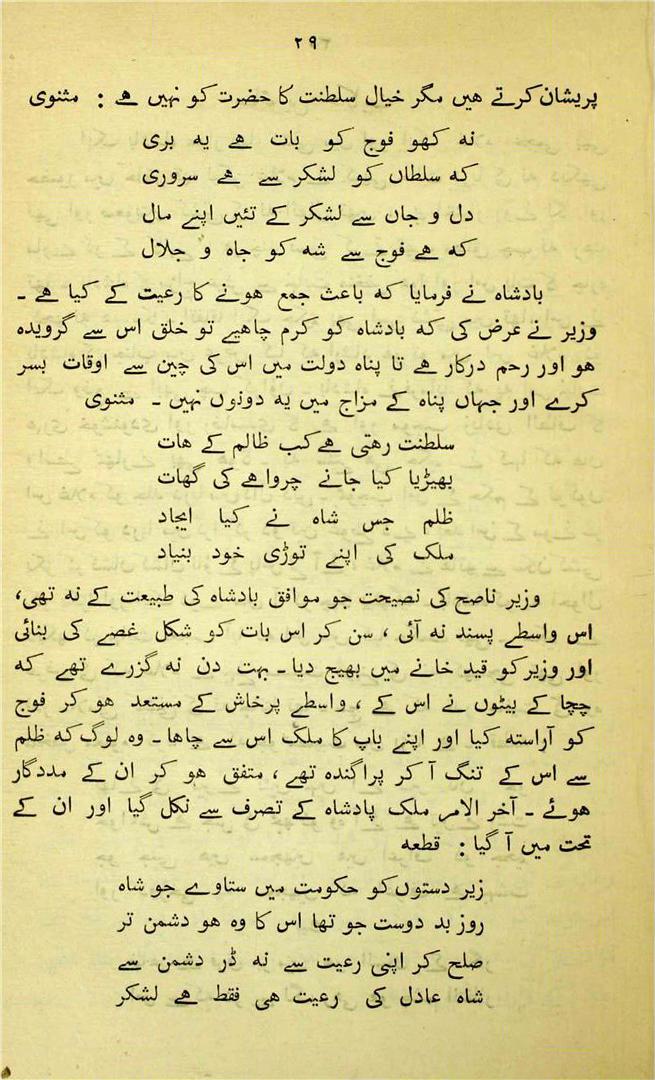 ۲۹
پریشان کرتے هیں مگر خیال سلطنت کا حضرت کو نہیں هے : مثنوی
نه کھو فوج کو بات هے یه بری
که سلطاں کو لشکر سے هے سروری
دل و جاں سے لشکر کے تئیں اپنے مال
که هے فوج سے شه کو جاه و جلال
بادشاه نے فرمایا که باعث جمع هونے کا رعیت کے کیا هے ۔
وزیر نے عرض کی که بادشاه کو کرم چاهیے تو خلق اس سے گرویده
هو اور رحم درکار هے تا پناه دولت میں اس کی چین سے اوقات بسر
کرے اور جہاں پناه کے مزاج میں یه دونوں نہیں ۔ مثنوی
سلطنت رهتی هے کب ظالم کے هات
بھیڑیا کیا جانے چرواهے کی گھات
ظلم جس شاه نے کیا ایجاد
ملک کی اپنے توڑی خود بنیاد
وزیر ناصح کی نصیحت جو موافق بادشاه کی طبیعت کے نه تھی،
اس واسطے پسند نه آئی ، سن کر اس بات کو شکل غصے کی بنائی
اور وزیر کو قید خانے میں بھیج دیا ۔ بہت دن نه گزرے تھے که
چچا کے بیٹوں نے اس کے ، واسطے پرخاش کے مستعد هو کر فوج
کو آراسته کیا اور اپنے باپ کا ملک اس سے چاها ۔ وه لوگ که ظلم
سے اس کے تنگ آ کر پراگنده تھے ، متفق هو کر ان کے مددگار
هوئے ۔ آخر الامر ملک پادشاه کے تصرف سے نکل گیا اور ان کے
تحت میں آ گیا : قطعه
زیر دستوں کو حکومت میں ستاوے جو شاه
روز بد دوست جو تھا اس کا وه هو دشمن تر
صلح کر اپنی رعیت سے نه ڈر دشمن سے
شاه عادل کی رعیت هی فقط هے لشکر